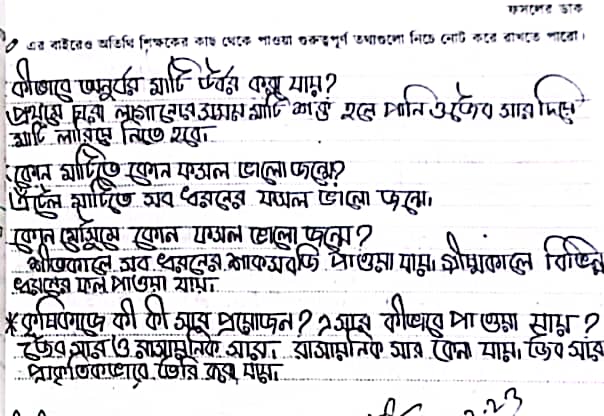 ফসলের ডাক
এর বাইরেও অতিথি শিক্ষকের কাছ থেকে পাওয়া গুরুত্বপূর্ণ তথ্যগুলো নিচে নোট করে রাখতে পারো।
কীভাবে অনুর্বর মাটি উর্বর করা যায়?
প্রথমে চারা লাগানোর সময় মাটি শক্ত হলে পানি ও জৈব সার দিয়ে
মাটি লারিয়ে নিতে হবে।
কোন মাটিতে কোন ফসল ভালো জন্মে?
এঁটেল মাটিতে সব ধরনের ফসল ভালো জন্মে।
কোন মৌসুমে কোন ফসল ভালো জন্মে?
শীতকালে সব ধরনের শাকসবজি পাওয়া যায়। গ্রীষ্মকালে বিভিন্ন
ধরনের ফল পাওয়া যায়।
*কৃষিকাজে কী কী সার প্রয়োজন? এ সার কীভাবে পাওয়া যায়?
জৈব সার ও রাসায়নিক সার। রাসায়নিক সার কেনা যায়। জৈব সার
প্রাকৃতিকভাবে তৈরি করা যায়।